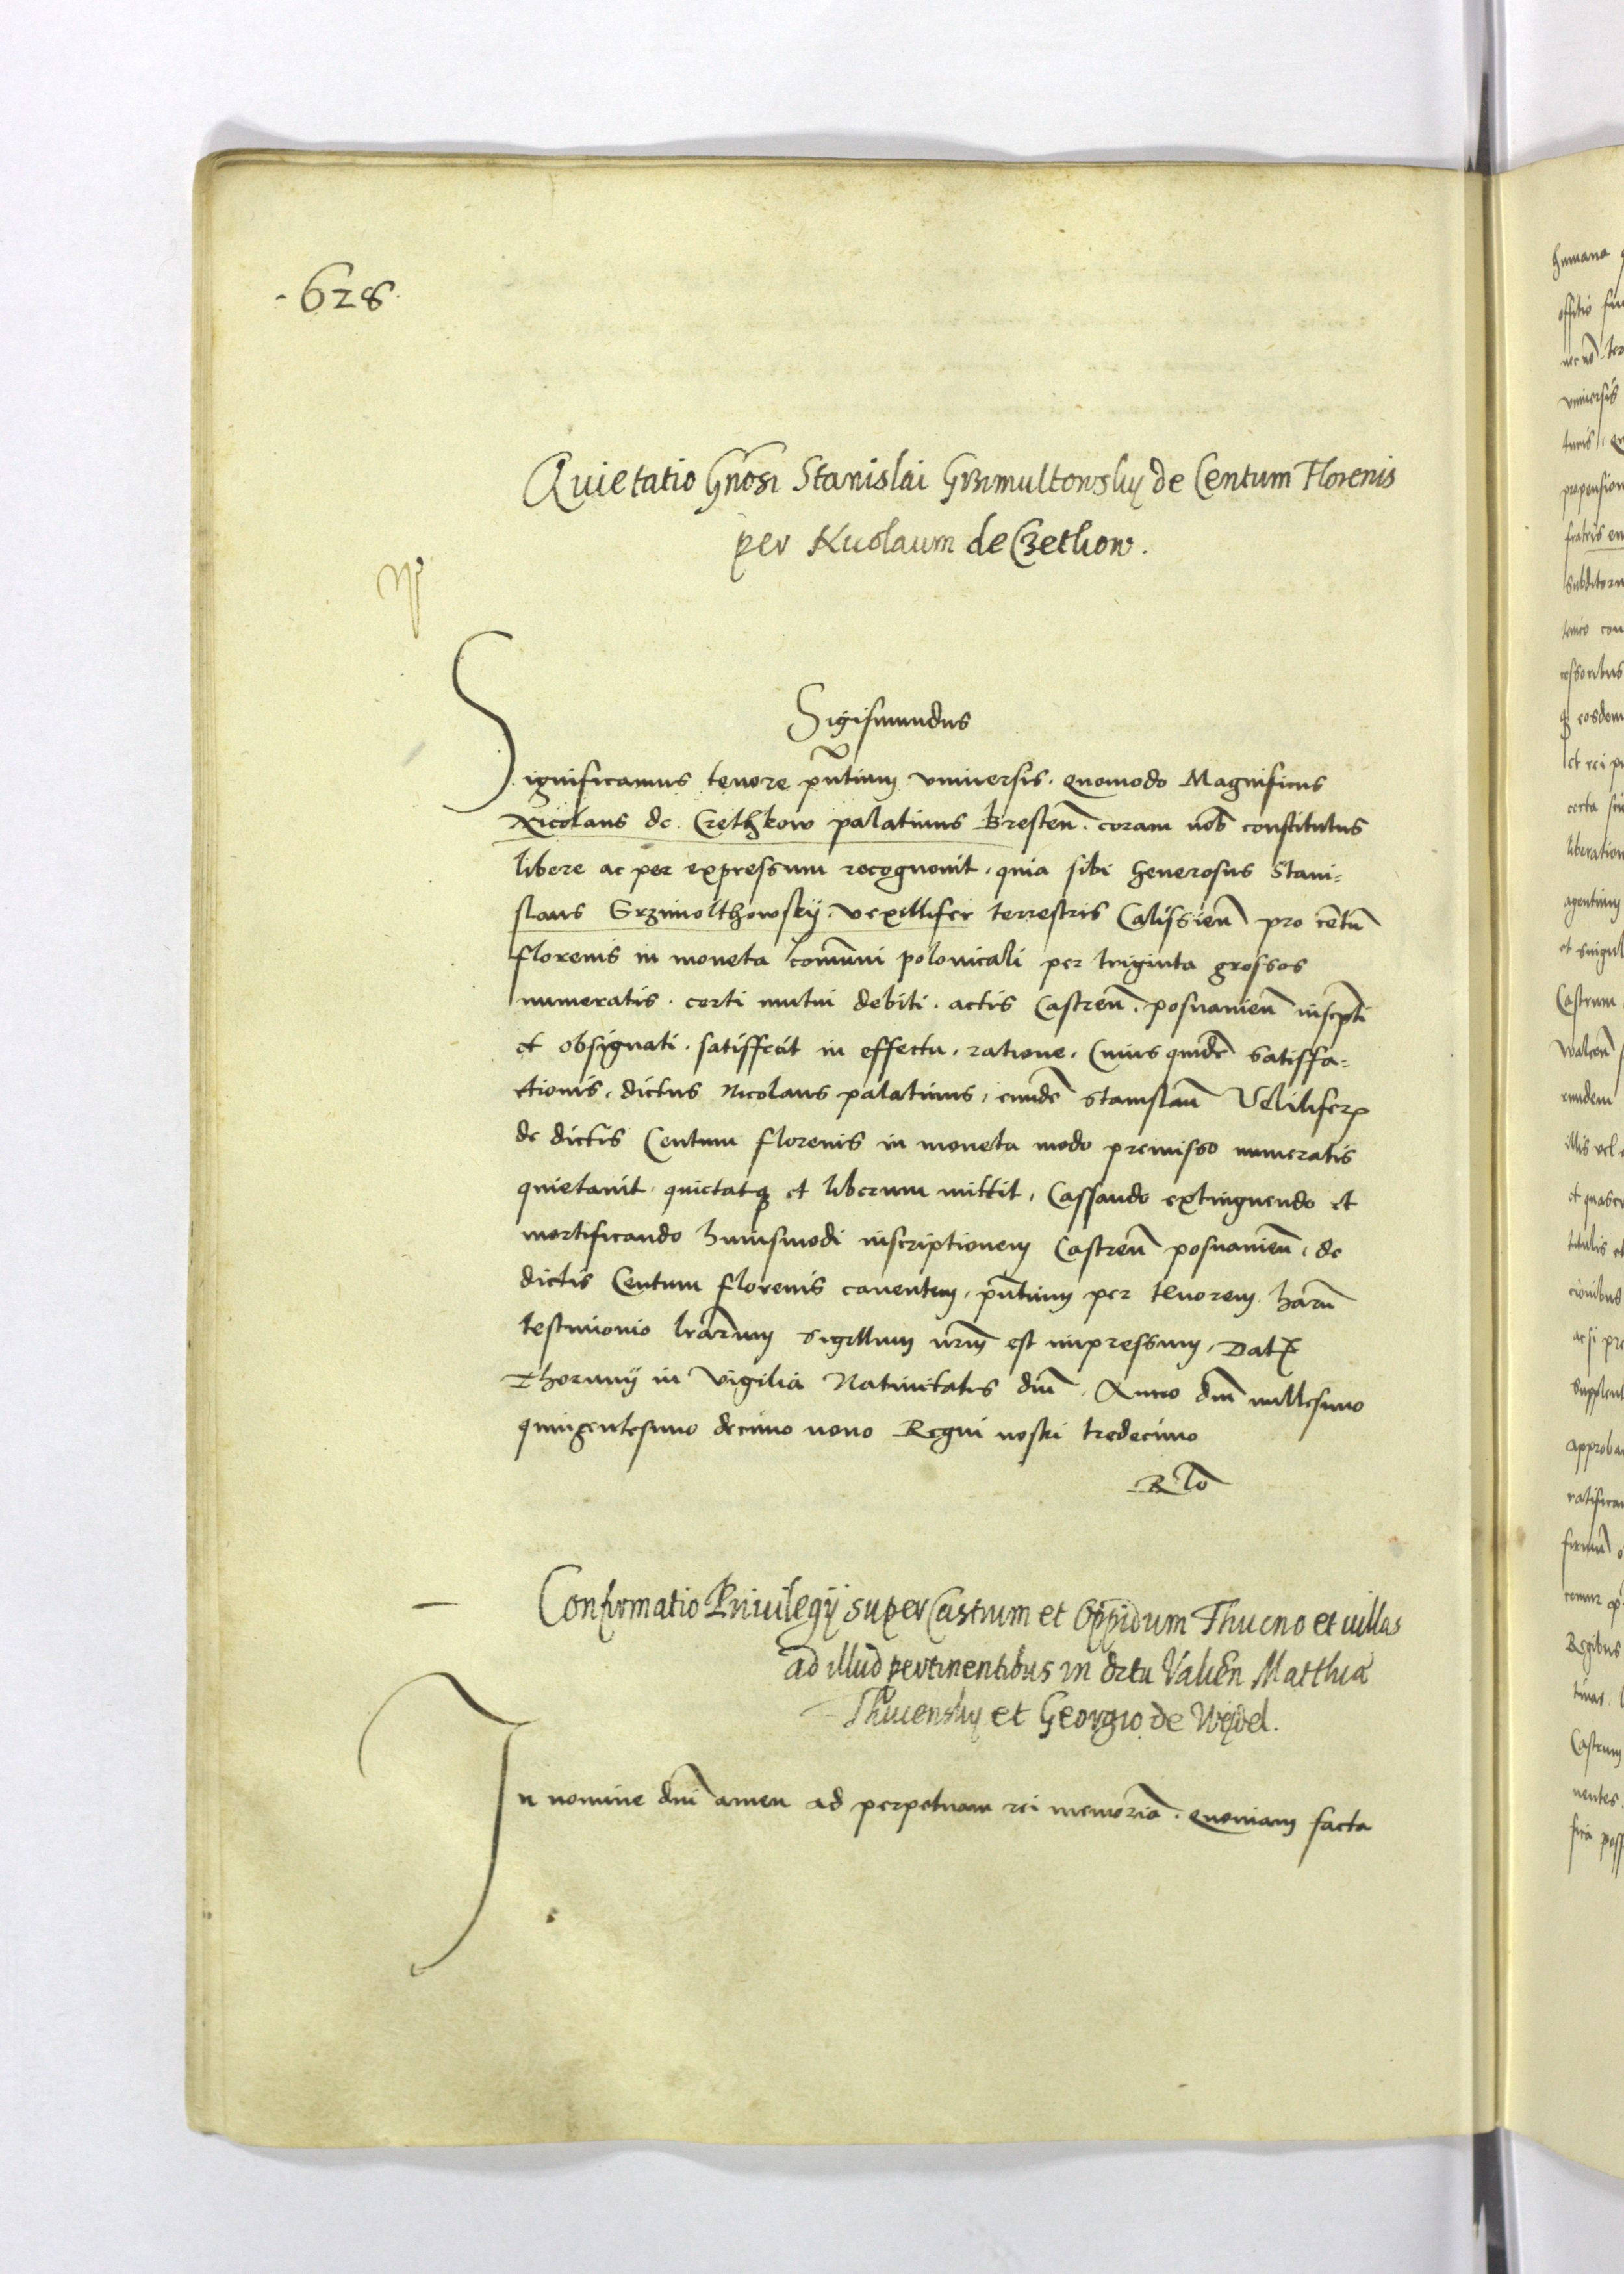 628
Quietatio Gnosi Stanislai Grzimultowsky de Centum Florenis
per Nicolaum de Czethow.
Sigismundus
Significamus tenore pñtium vniversis. quomodo Magnificus
Nicolaus de Crethkow palatinus Bresteñ. coram nob constitutus
libere ac per expressum recognovit. quia sibi Generosus Stani=
slaus Grzimolthowsky. vexillifer terrestris Calissieñ pro centũ
florenis in moneta comuni polonicali per triginta grossos
numeratis. certi mutui debiti. actis Castreñ. posnanieñ inscpti
et obsignati. satisfecit in effectu. ratione. Cuius quide satisfa=
ctionis, dictus Nicolaus palatinus, eunde Stanislau Vexilifer
de dictis Centum florenis in moneta modo premisso numeratis
quietavit quietatq et liberum mittit, Cassando extinguendo et
mortificando huiusmodi inscriptionem Castreñ posnanieñ, de
dictis Centum florenis caventem, pñtium per tenorem. harũ
testimonio lrarum sigillum nrm est impressum, Dat
Thorunij in vigilia Nativitatis dni. Anno dni millesimo
quingentesimo decimo nono Regni nostri tredecimo
R lo
Confirmatio Priuilegij super Castrum et Oppidum Thucno et uillas
ad illud pertinentibus in dctu Valień Matthiæ
Thucensky et Georgio de Wedel.
In nomine dni amen ad perpetuam rei memoria. quoniam facta
humana
offitio
universis
fratris
eosdem
certa
liberation
agentium
et singul
Castrum
eundem
illis vel
titulis et
ac si
approba
Regibus
Castrum
nentes